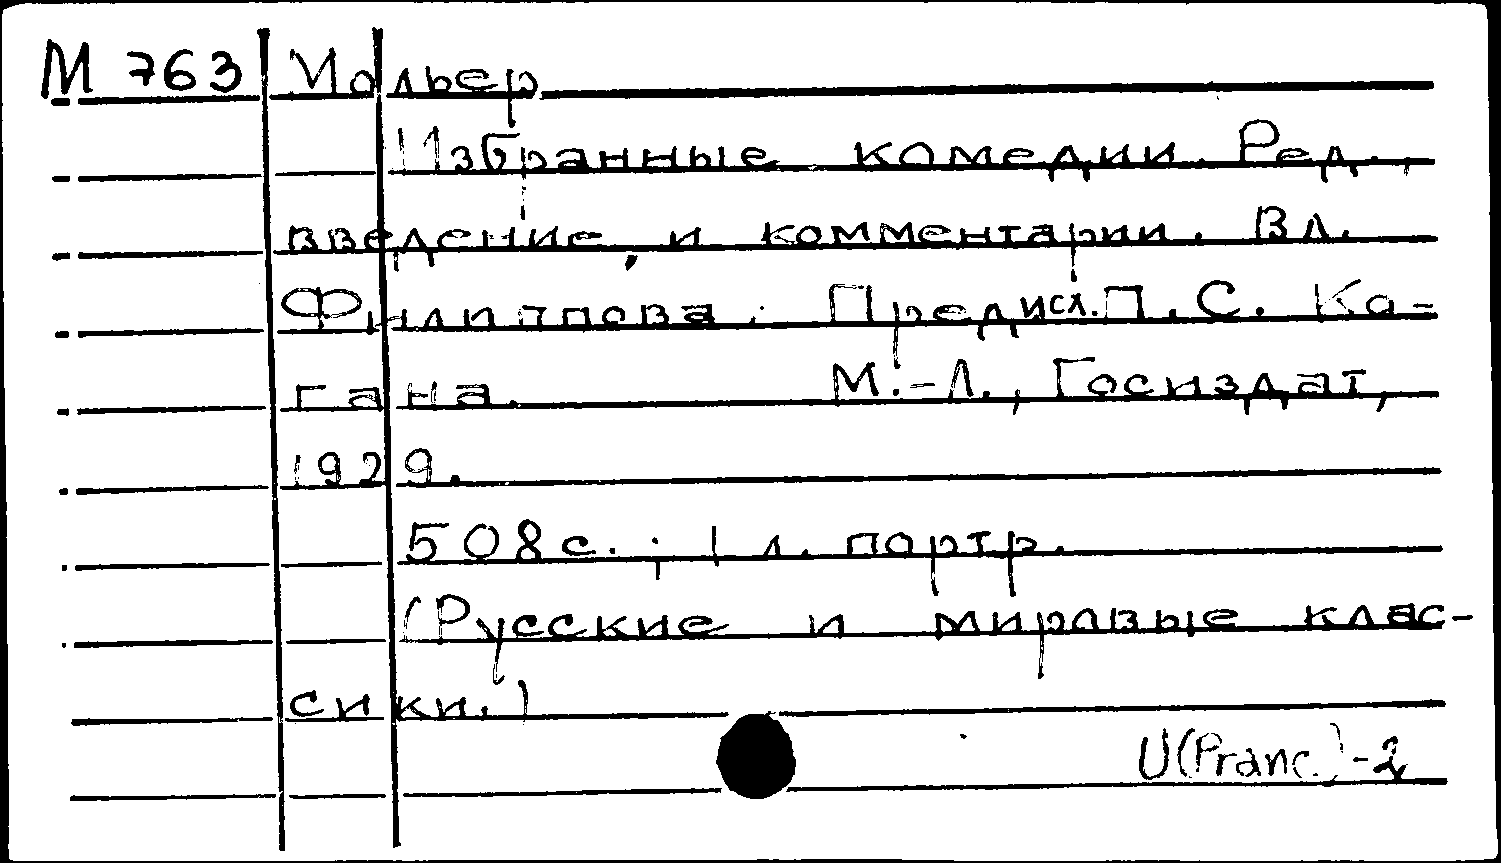 М 763 Мольер
Избранные комедии. Ред.,
введение и комментарии. Вл.
Филиппова. Предисл. П. С. Ка-
гана. М.-Л., Госиздат,
1929.
508 с.; 1 л. портр.
(Русские и мировые клас-
сики.)
U(Pranc.)-2